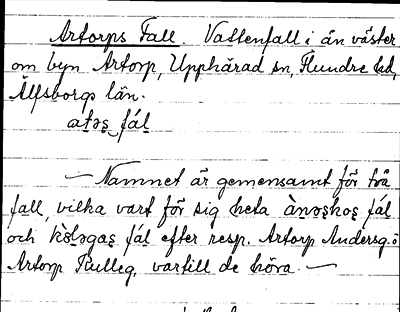 Artorps Fall. Vattenfall i ån väster
om byn Artorp, Upphärad sn, Flundre hd,
Älfsborgs län.
atəs fál
— Namnet är gemensamt för två
fall, vilka vart för sig heta ànəskos fál
och kòləgas fál efter resp. Artorp Andersg. o
Artorp Kulleg. vartill de höra. —